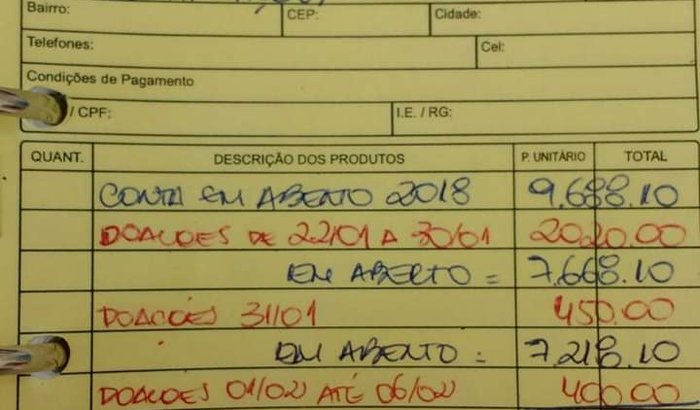 Bairro: CEP: Cidade:
Telefones: Cel:
Condições de Pagamento
/ CPF: I.E. / RG:
QUANT. DESCRIÇÃO DOS PRODUTOS P. UNITÁRIO TOTAL
CONTA EM ABENTO 2018 9.688.10
DOACOES DE 22/01 A 30/01 2020.00
EM ABERTO = 7.668.10
DOACÓES 31/01 450.00
EM ABENTO = 7.218.10
DOACOES 01/02 ATÉ 06/02 400.00